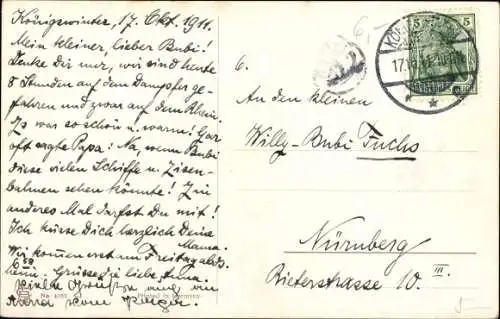 Königswinter, 17. Okt. 1911.
Mein kleiner, lieber Bubi!
Denke Du nur, wir sind heute
8 Stunden auf dem Dampfer ge-
fahren und zwar auf dem Rhein.
Es war so schön u. warm! Gar
oft sagte Papa: Na, wenn Bubi
diese vielen Schiffe u. Eisen-
bahnen sehen könnte! Ein
anderes Mal darfst Du mit!
Ich küsse Dich herzlich Deine
Mama.
Wir kommen erst am Freitag abds.
6 heim. Grüsse die liebe Anna.
No.
Printed in Germany
6.
6,-
An den kleinen
Willy-Bubi Fuchs
Nürnberg
Bieterstrasse 10. III.
5 5
17.10.11
5-